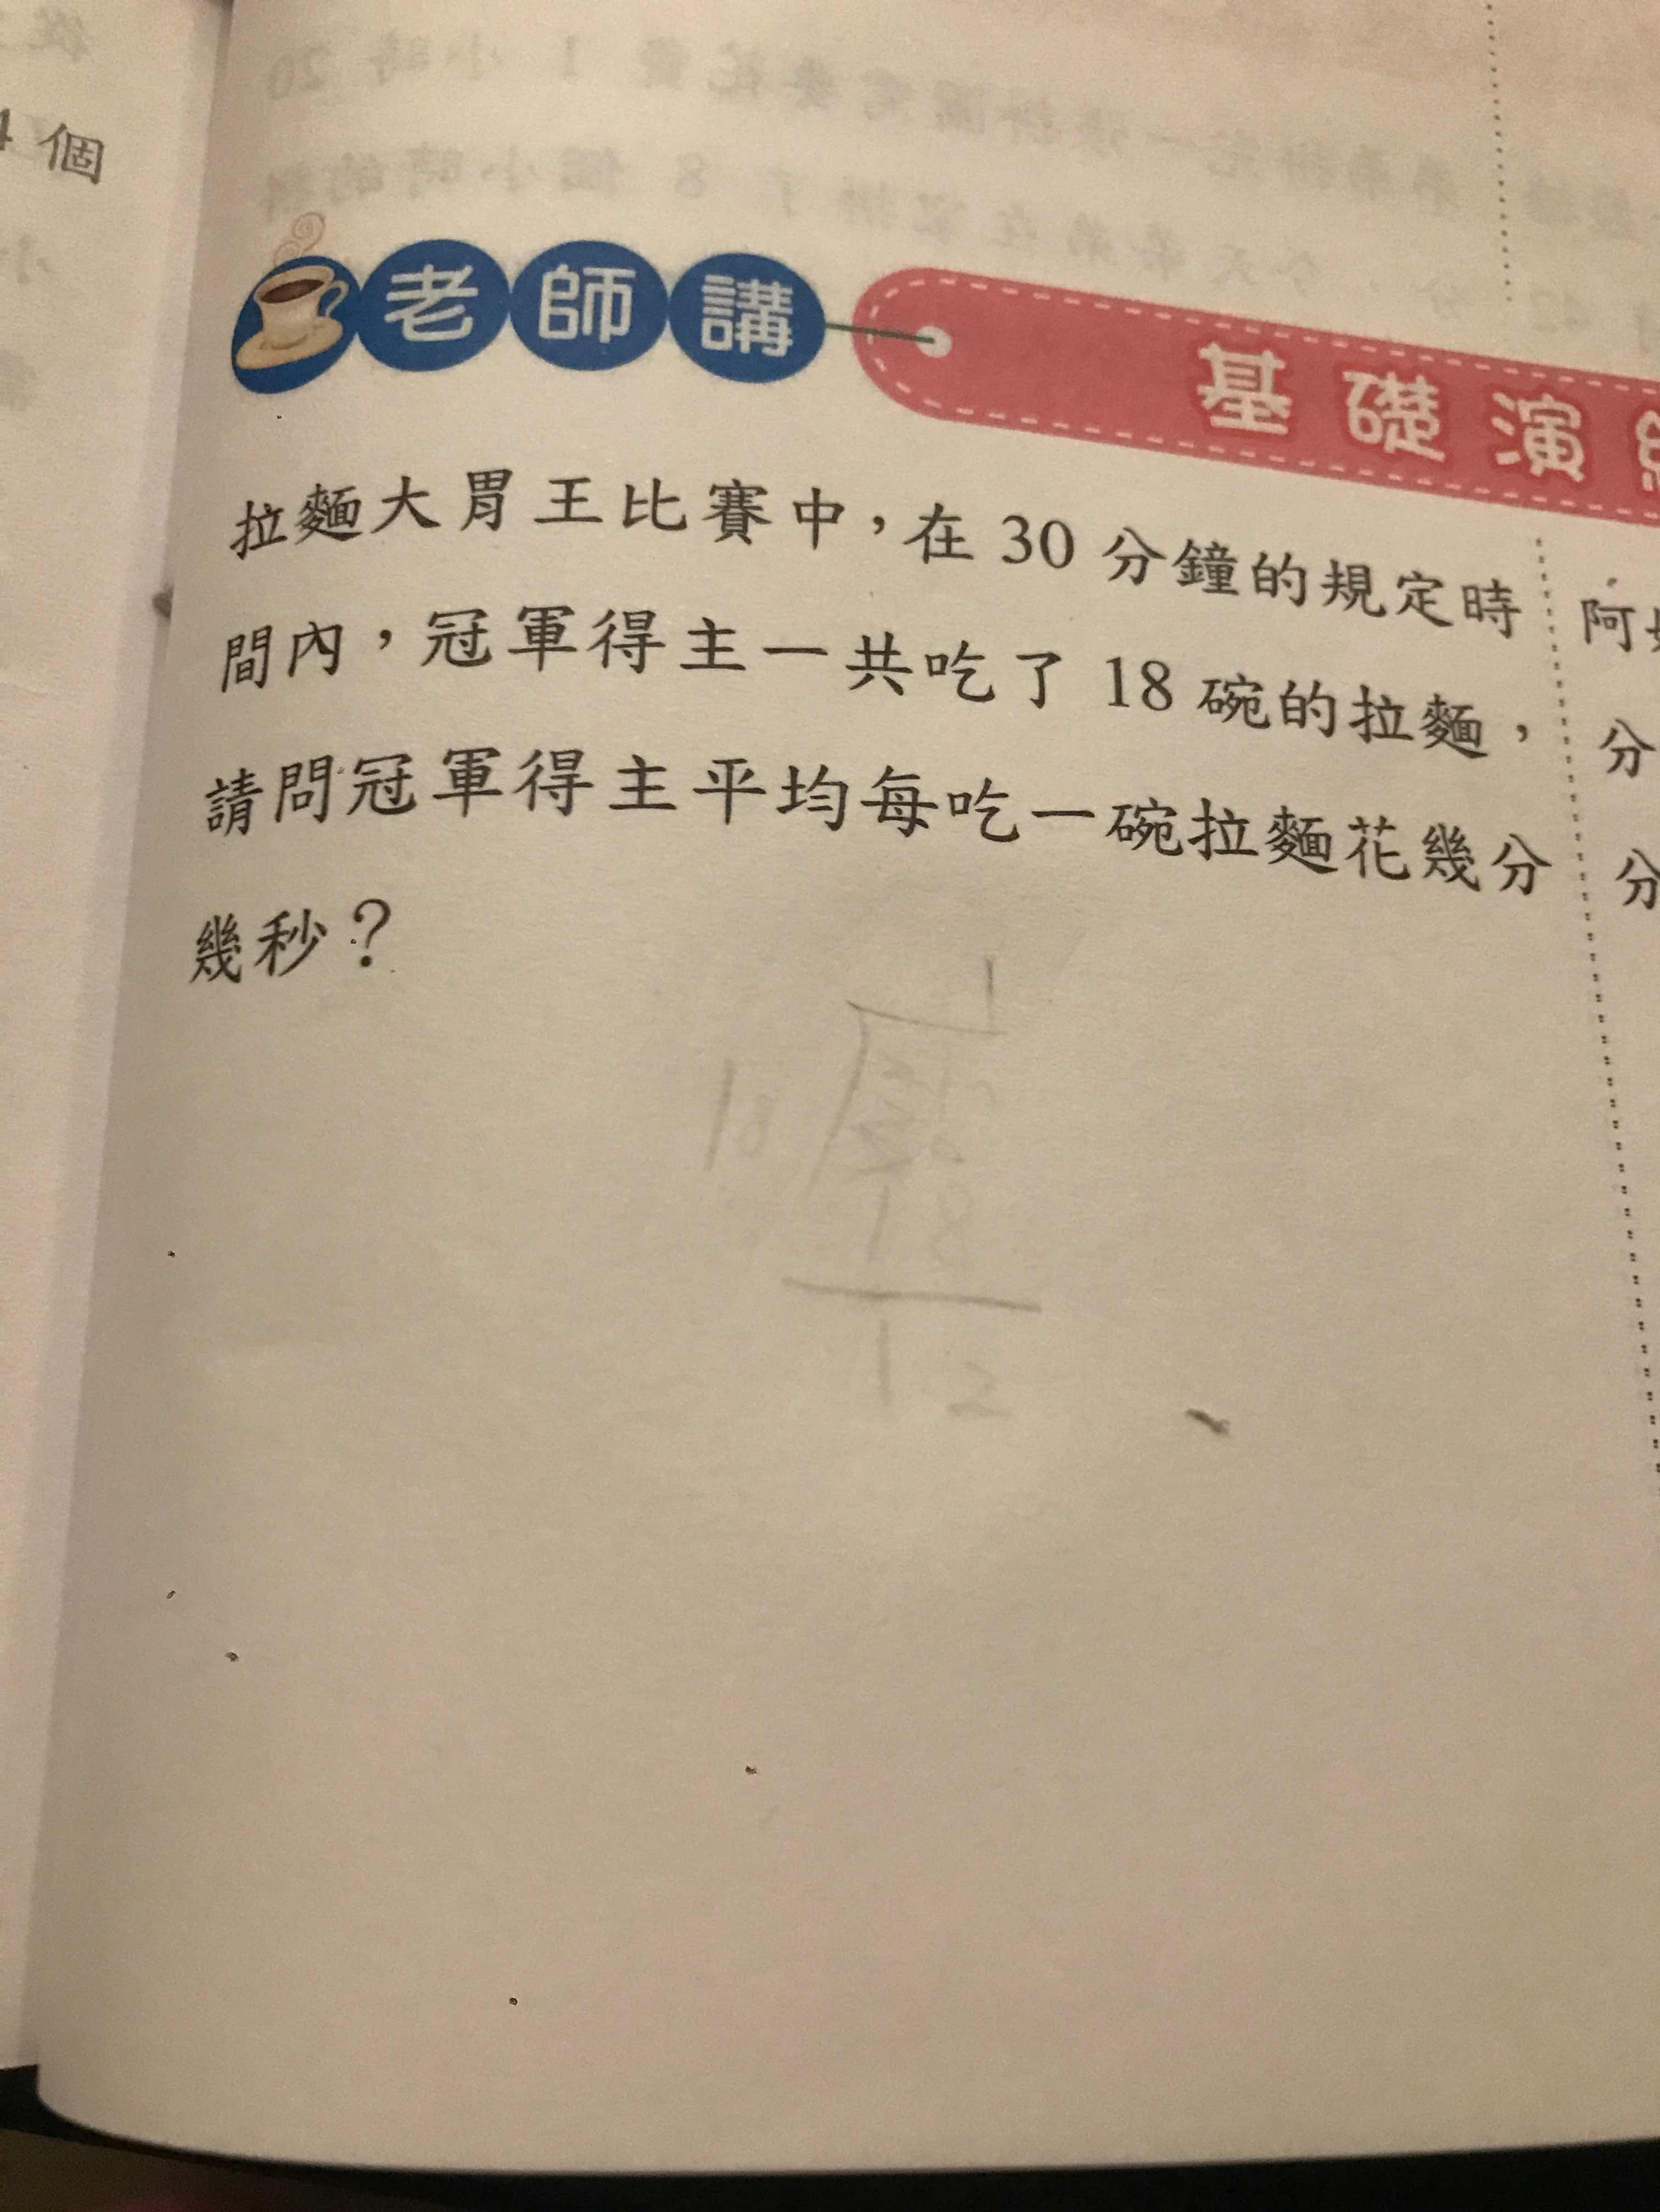 4 個
老師講
基礎演
拉麵大胃王比賽中，在 30 分鐘的規定時
間內，冠軍得主一共吃了 18 碗的拉麵，
請問冠軍得主平均每吃一碗拉麵花幾分
幾秒？
阿
分
分
1
18
30
18
12